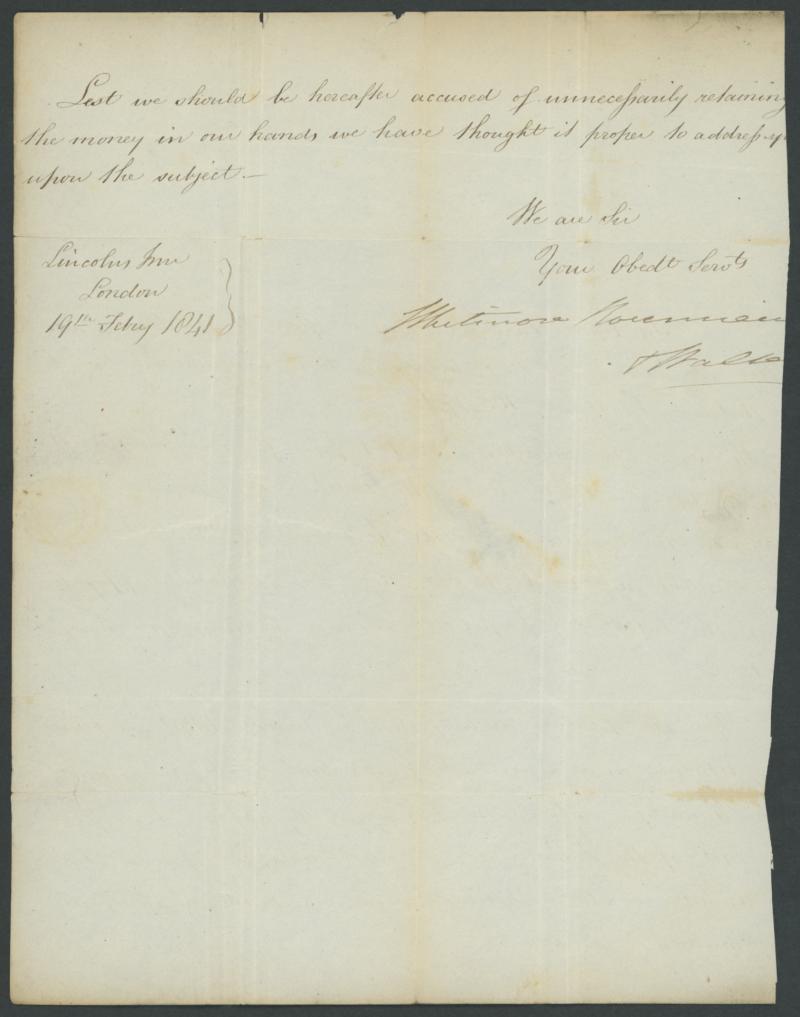 Lest we should be hereafter accused of unnecessarily retaining
the money in our hands we have thought it proper to address
upon the subject.—
We are Sir
Your Obedt Servts
Lincolns Inn
London
19th Feby 1841
Whitmore